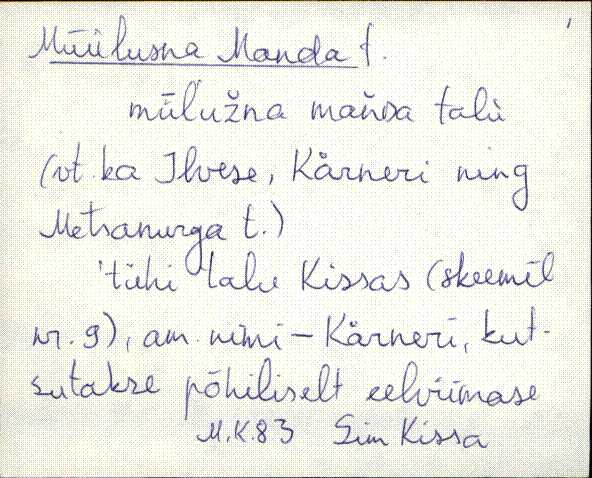 Müülusna Manda t.
mūlužna mańᴅa talù
(vt. ka Ilvese, Kårneri ning
Metsanurga t.)
'tühi talu Kissas (skeemil
nr. 9), am. nimi – Kårneri, kut-
sutakse põhiliselt eelviimase
M.K.83 Sim Kissa